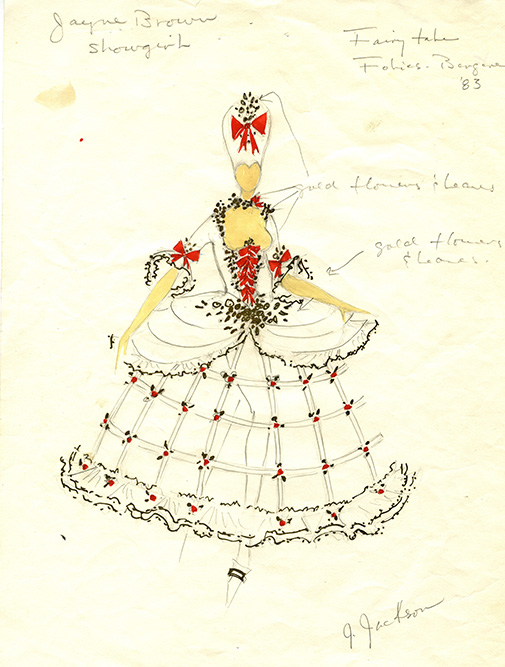 Jayne Brown
Showgirl
Fairy tale
Folies-Bergere
'83
gold flowers & leaves
gold flowers
& leaves.
J. Jackson